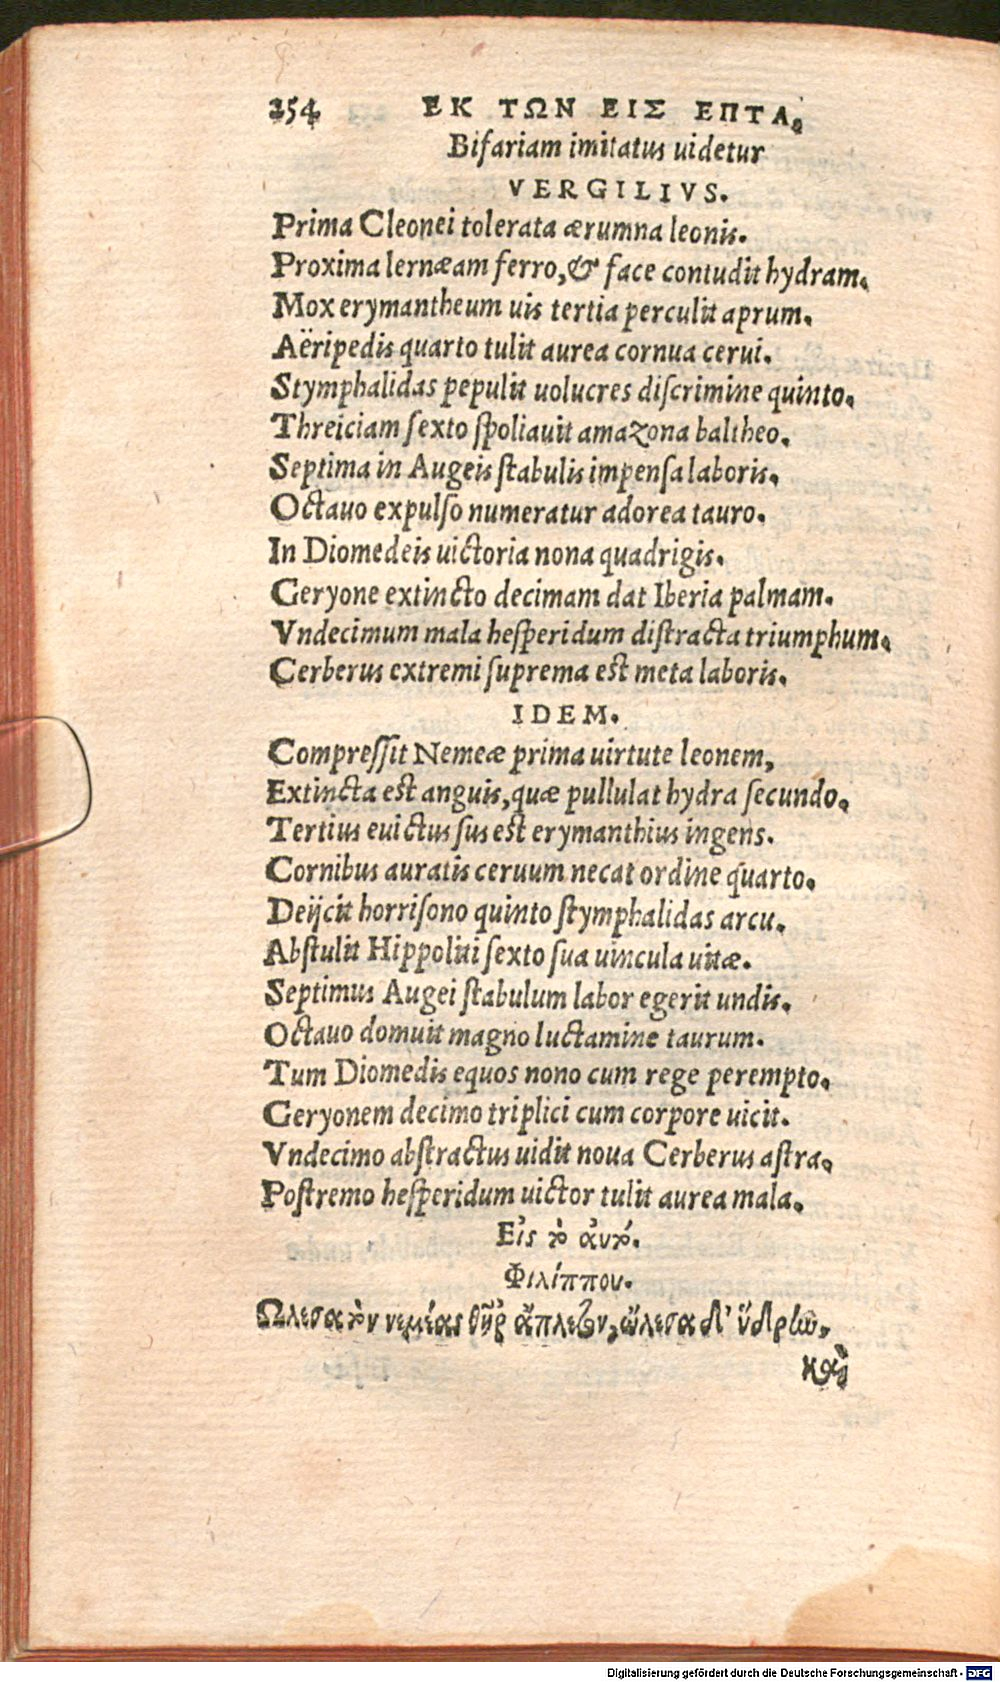 254 ΕΚ ΤΩΝ ΕΙΣ ΕΠΤΑ.
Bifariam imitatus uidetur
VERGILIVS.
Prima Cleonei tolerata ærumna leonis.
Proxima lernæam ferro, & face contudit hydram.
Mox erymantheum uis tertia perculit aprum.
Aëripedis quarto tulit aurea cornua cerui.
Stymphalidas pepulit uolucres discrimine quinto.
Threiciam sexto spoliauit amazona baltheo.
Septima in Augeis stabulis impensa laboris.
Octauo expulso numeratur adorea tauro.
In Diomedeis uictoria nona quadrigis.
Geryone extincto decimam dat Iberia palmam.
Vndecimum mala hesperidum distracta triumphum.
Cerberus extremi suprema est meta laboris.
IDEM.
Compressit Nemeæ prima uirtute leonem,
Extincta est anguis, quæ pullulat hydra secundo.
Tertius euictus sus est erymanthius ingens.
Cornibus auratis ceruum necat ordine quarto.
Deijcit horrisono quinto stymphalidas arcu.
Abstulit Hippoliti sexto sua uincula uitæ.
Septimus Augei stabulum labor egerit undis.
Octauo domuit magno luctamine taurum.
Tum Diomedis equos nono cum rege perempto.
Geryonem decimo triplici cum corpore uicit.
Vndecimo abstractus uidit noua Cerberus astra.
Postremo hesperidum uictor tulit aurea mala.
Εἰς τὸ αὐτό.
Φιλίππου.
Ὤλεσα τὸν νεμέας θῆρ ἄπλετον, ὤλεσα δ' ὕδρην,
καὶ
Digitalisierung gefördert durch die Deutsche Forschungsgemeinschaft - DFG